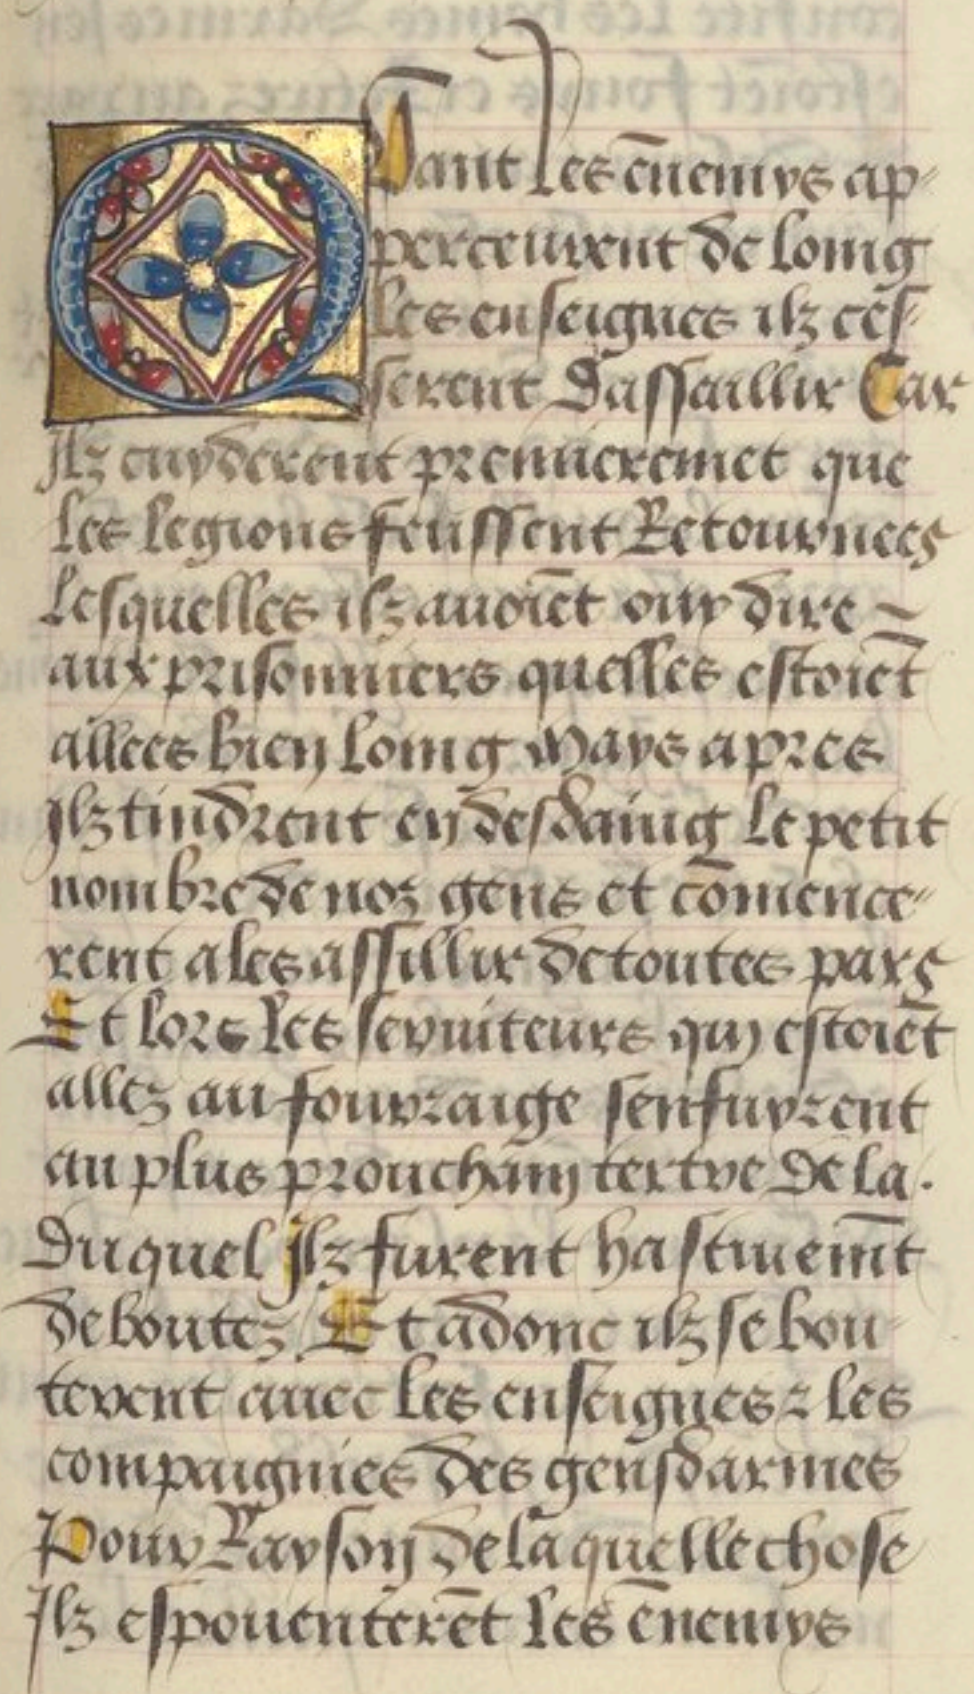 QUant les ēnemys ap-
perceurent de loing
les enseignes ilz ces-
serent dassaillir Car
Ilz cuyderent premieremēt que
les legions feussent Retournees
Lesquelles ilz auoiēt ouy dire ~
aux prisonniers quelles estoiēt
allees bien loing Mays apres
Ilz tindrent en desdaing le petit
nombre de noz gens et cōmence-
rent a les assillir de toutes pars
Et lors les seruiteurs qui estoiēt
allez au fourraige senfuyrent
au plus prouchain tertre de la.
Duquel Ilz furent hastiuemīt
deboutez Et adonc ilz se bou-
terent auec les enseignes ⁊ les
compaignies des gensdarmes
Pour Rayson de la quelle chose
Ilz espouenterēt les ēnemys